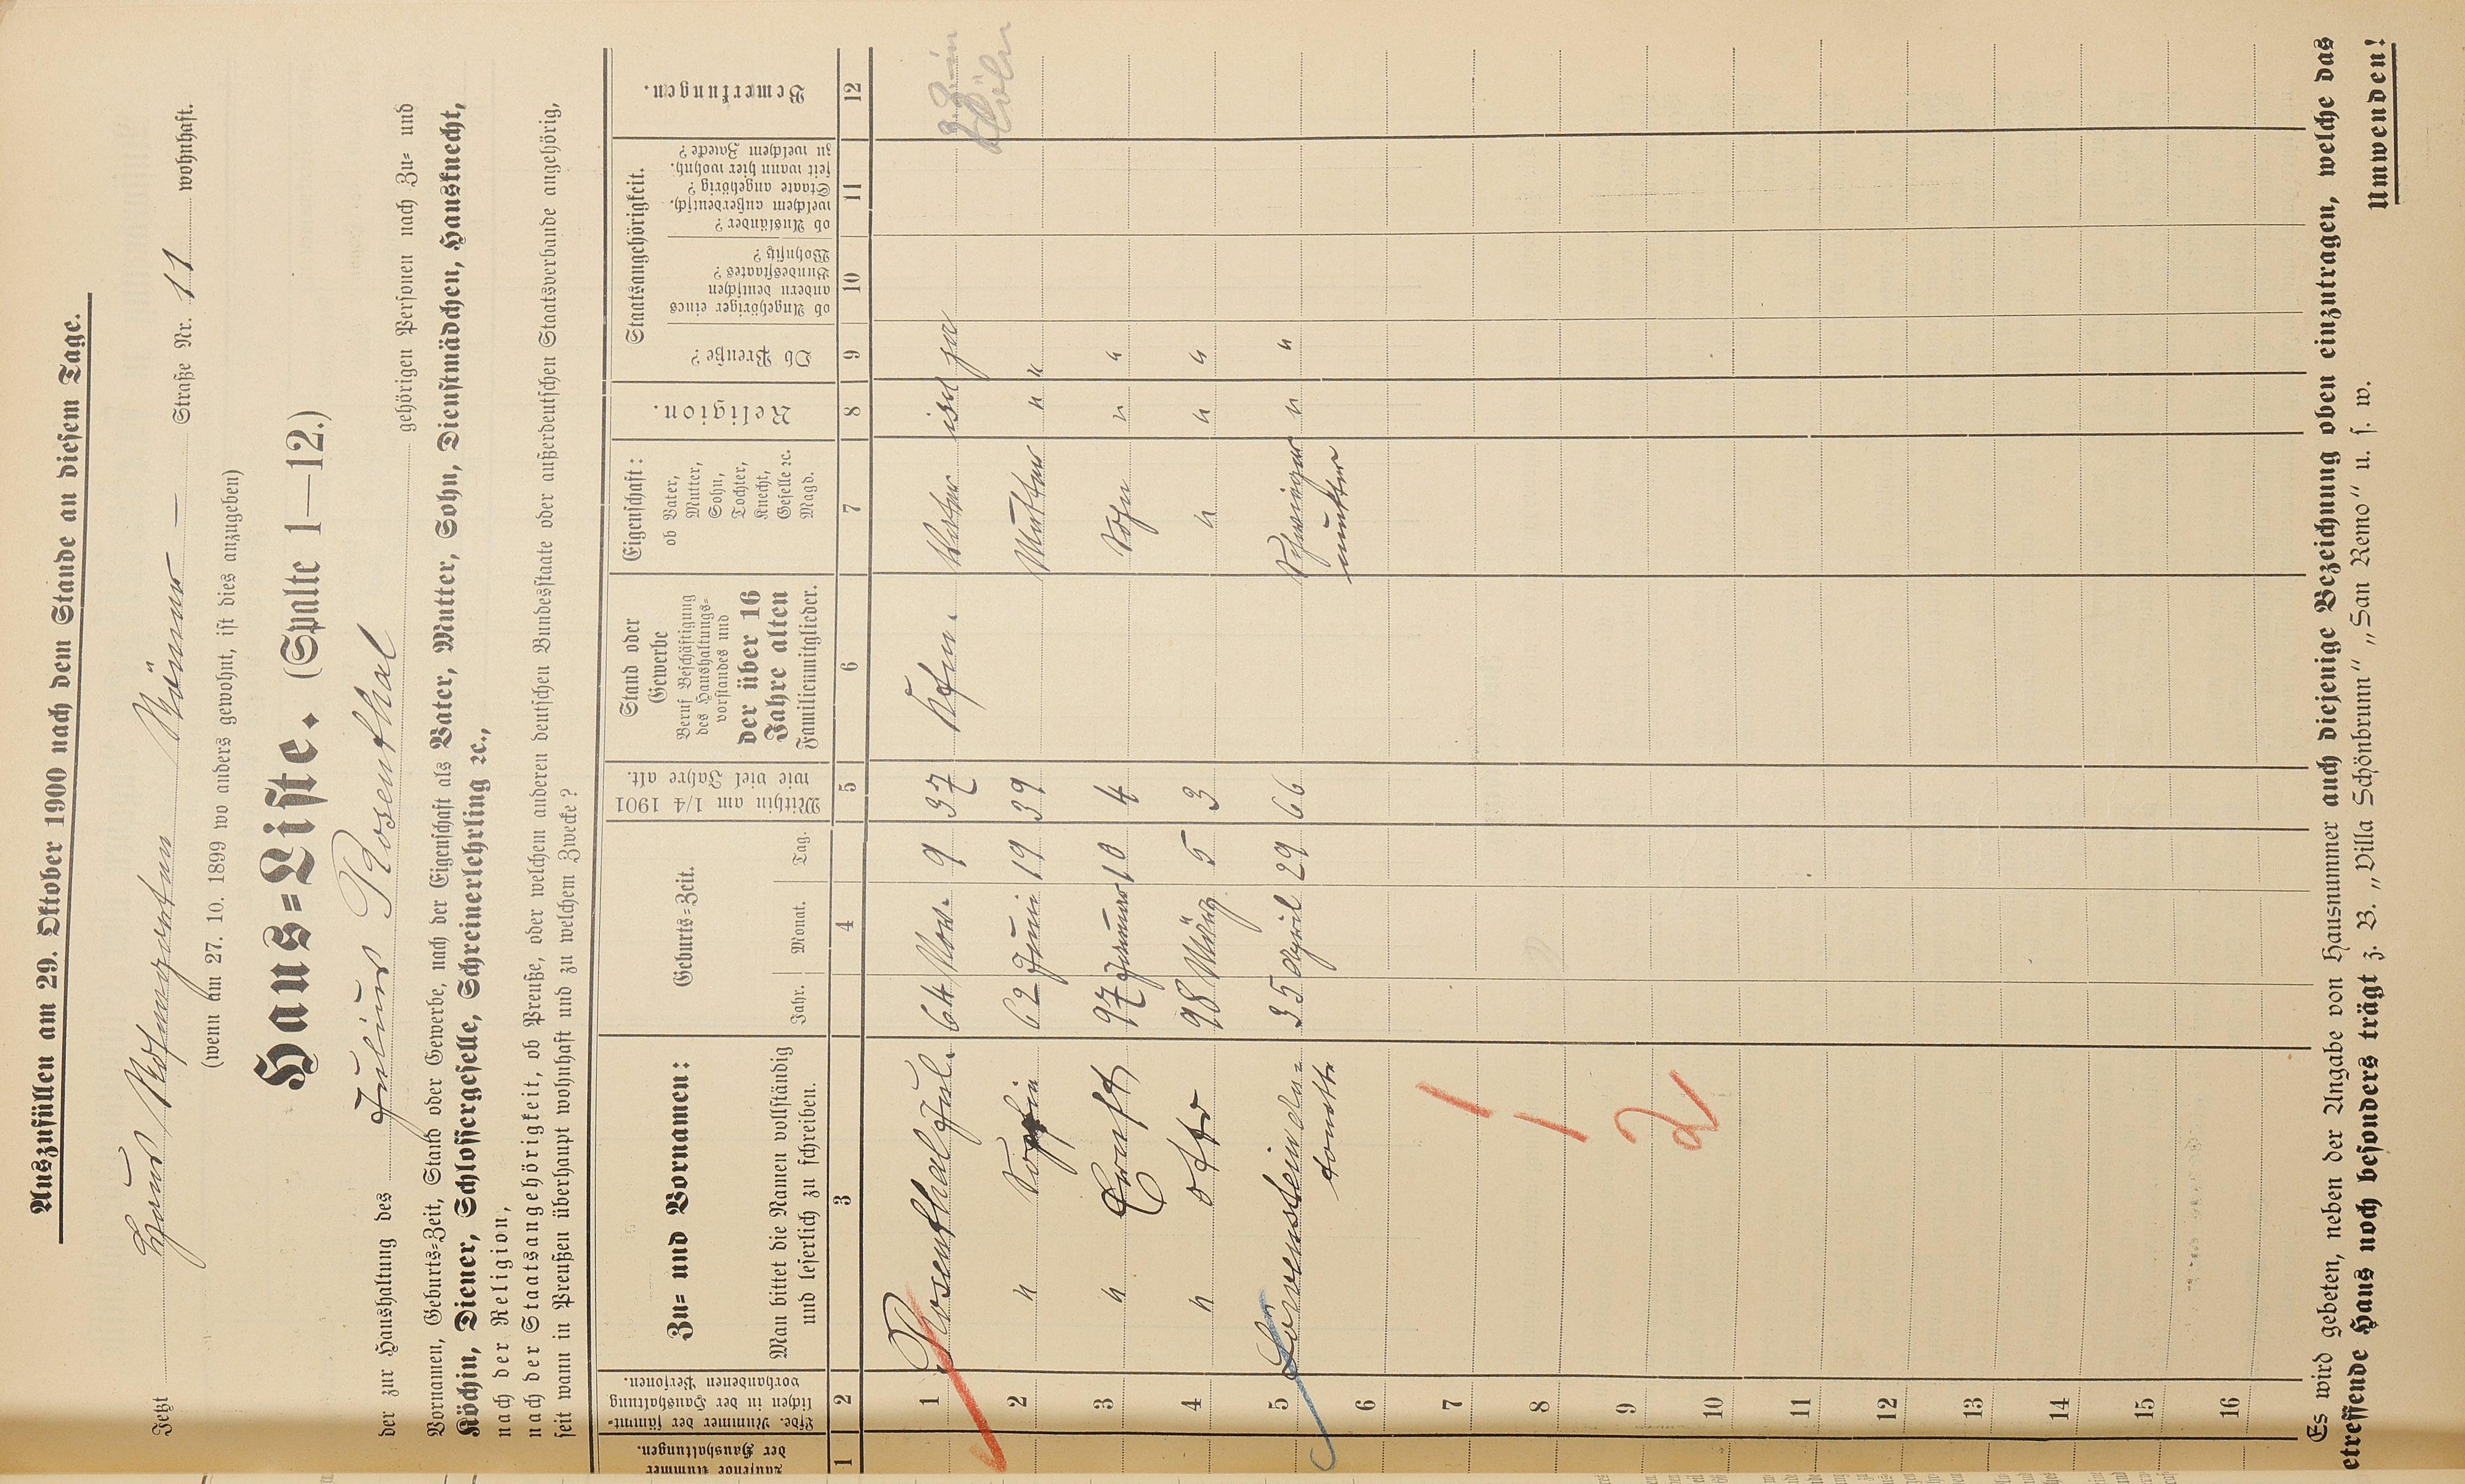 Auszufüllen am 29. Oktober 1900 nach dem Stande an diesem Tage.
Jetzt Haus Straße Nr. 11 wohnhaft.
(wenn am 27. 10. 1899 wo anders gewohnt, ist dies anzugeben)
Haus=Liste. (Spalte 1—12.)
der zur Haushaltung des Julius Rosenthal gehörigen Personen nach Zu= und
Vornamen, Geburts=Zeit, Stand oder Gewerbe, nach der Eigenschaft als Vater, Mutter, Sohn, Dienstmädchen, Hausknecht,
Köchin, Diener, Schlossergeselle, Schreinerlehrling ꝛc.,
nach der Religion,
nach der Staatsangehörigkeit, ob Preuße, oder welchem anderen deutschen Bundesstaate oder außerdeutschen Staatsverbande angehörig,
seit wann in Preußen überhaupt wohnhaft und zu welchem Zwecke?
Laufende Nummer der Haushaltungen.
Lfde. Nummer der sämmt=
lichen in der Haushaltung
vorhandenen Personen.
Zu= und Vornamen:
Man bittet die Namen vollständig
und leserlich zu schreiben.
Geburts=Zeit.
Jahr. Monat. Tag.
Mithin am 1/4 1901
wie viel Jahre alt.
Stand oder
Gewerbe
Beruf Beschäftigung
des Haushaltungs=
vorstandes und
der über 16
Jahre alten
Familienmitglieder.
Eigenschaft:
ob Vater,
Mutter,
Sohn,
Tochter,
Knecht,
Geselle ꝛc.
Magd.
Religion.
Staatsangehörigkeit.
Ob Preuße?
ob Angehöriger eines
andern deutschen
Bundesstaates?
Wohnsitz?
ob Ausländer?
welchem außerdeutsch.
Staate angehörig?
seit wann hier wohnh.
zu welchem Zwecke?
Bemerkungen.
1 2 3 4 5 6 7 8 9 10 11 12
1 Rosenthal Jul. 64 Nov. 9 37 Vater isr ja
Cöln
2 " Sophie 62 Juni 19 39 Mutter " "
3 " Ernst 97 Januar 10 4 Sohn " "
4 " Otto 98 März 5 3 " " "
5 Löwenstein 35 April 29 66 Schwieger " "
mutter
6
7
8
9
10
11
12
13
14
15
16
2
Es wird gebeten, neben der Angabe von Hausnummer auch diejenige Bezeichnung oben einzutragen, welche das
etreffende Haus noch besonders trägt z. B. „Villa Schönbrunn" „San Remo" u. s. w.
Umwenden!